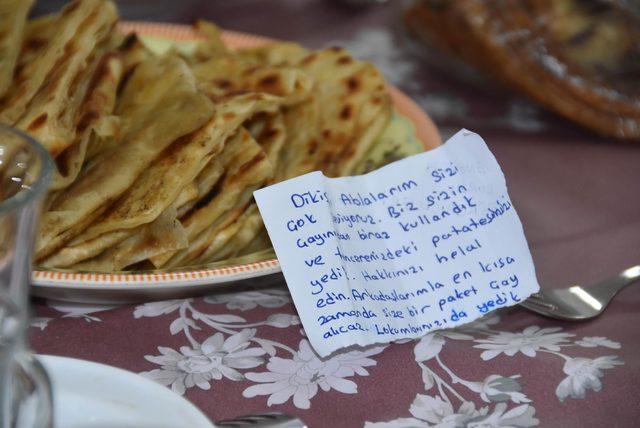 Dikiş Ablalarım sizi
çok seviyoruz. Biz sizin
Gayınızdan biraz kullandık
ve tencerenizdeki patatesinizi
yedik. Hakkınızı helal
edin. Arkadaşlarımla en kısa
zamanda size bir paket Çay
alıcaz. Lokumlarınızı da yedik